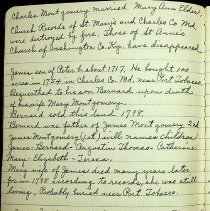 Charles Montgomery married Mary Ann Elder.
Church Records of St Mary's and Charles Co Md.
were destroyed by fire. Those of St Ann's
Church of Washington Co Ky. have disappeared.
James, son of Peter b. about 1717. He bought 100
acres in 1754 in Charles Co. Md. near Port Tobacco.
Bequeathed to his son Bernard upon death
of his wife Mary Montgomery.
Bernard sold this land 1798.
Bernard was father of James Montgomery 2nd
James Montgomery (1st) will names children:
James- Bernard- Augustin Thomas- Catherine
Mary- Elizabeth - Teresa.
Mary wife of James died many years later
1798 according to records, she was still
living. Probably buried near Port Tobacco.